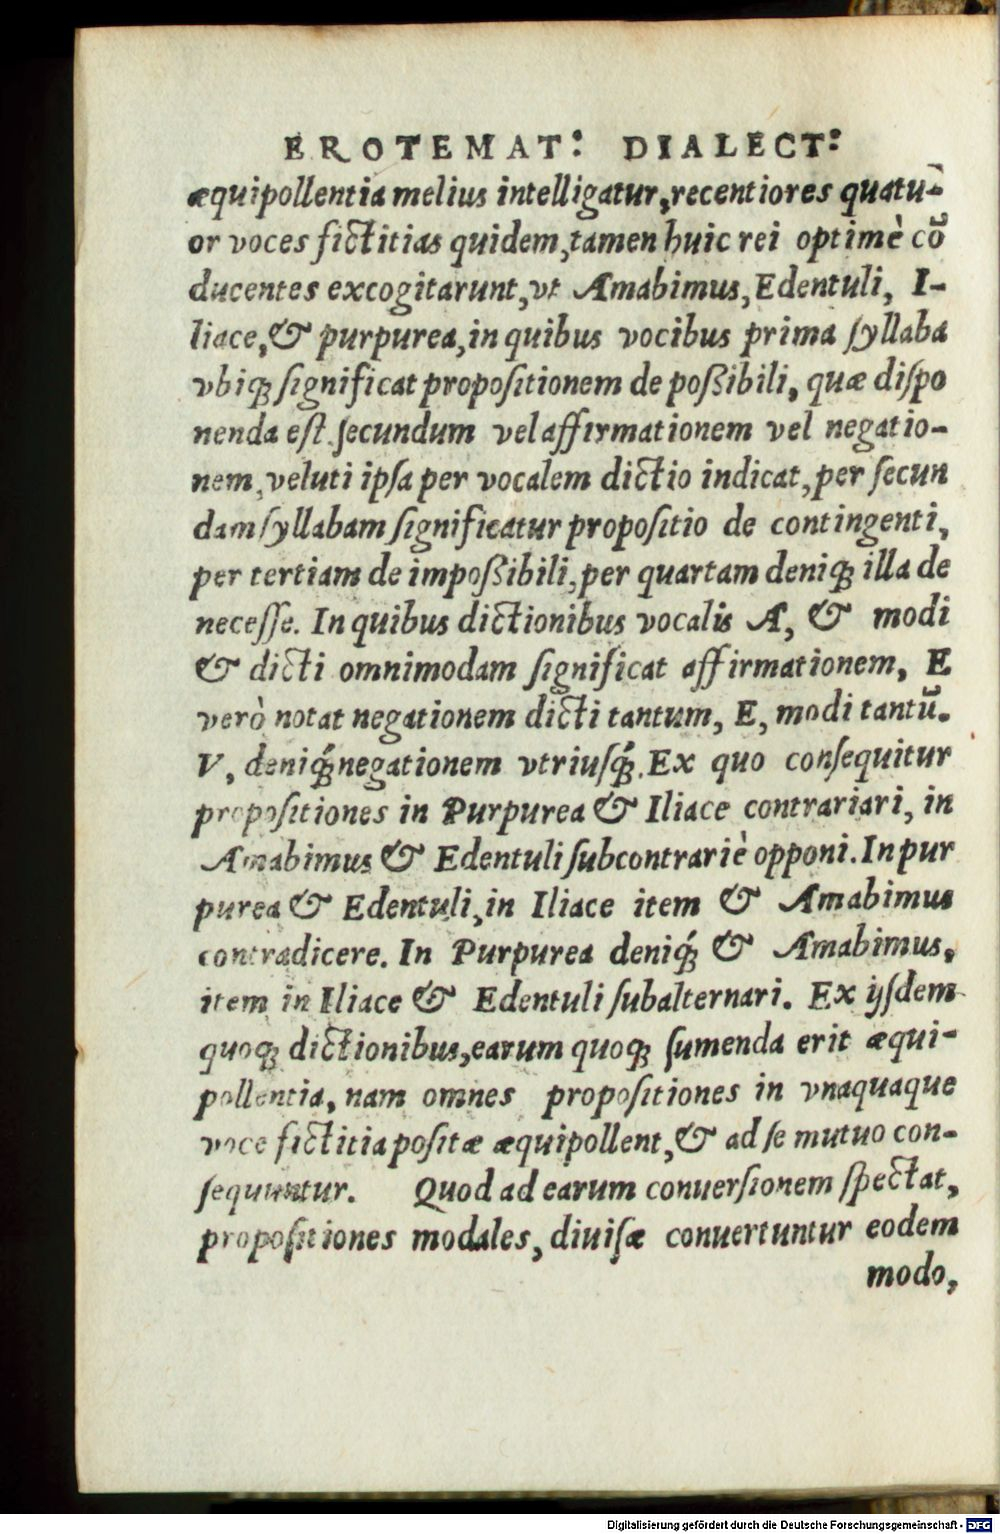 EROTEMAT: DIALECT:
æquipollentia melius intelligatur, recentiores quatu-
or voces fictitias quidem, tamen huic rei optimè cō
ducentes excogitarunt, vt Amabimus, Edentuli, I-
liace, & purpurea, in quibus vocibus prima ſyllaba
vbiqꝫ ſignificat propoſitionem de poßibili, quæ diſpo
nenda eſt ſecundum vel affirmationem vel negatio-
nem, veluti ipſa per vocalem dictio indicat, per ſecun
dam ſyllabam ſignificatur propoſitio de contingenti,
per tertiam de impoßibili, per quartam deniqꝫ illa de
neceſſe. In quibus dictionibus vocalis A, & modi
& dicti omnimodam ſignificat affirmationem, E
verò notat negationem dicti tantum, E, modi tantū.
V, deniqꝫ́ negationem vtriuſqꝫ́. Ex quo conſequitur
propoſitiones in Purpurea & Iliace contrariari, in
Amabimus & Edentuli ſubcontrariè opponi. In pur
purea & Edentuli, in Iliace item & Amabimus
contradicere. In Purpurea deniqꝫ́ & Amabimus,
item in Iliace & Edentuli ſubalternari. Ex ijſdem
quoqꝫ dictionibus, earum quoqꝫ ſumenda erit æqui-
pollentia, nam omnes propoſitiones in vnaquaque
voce fictitia poſitæ æquipollent, & ad ſe mutuo con-
ſequuntur. Quod ad earum conuerſionem ſpectat,
propoſitiones modales, diuiſæ conuertuntur eodem
modo,
Digitalisierung gefördert durch die Deutsche Forschungsgemeinschaft - DFG